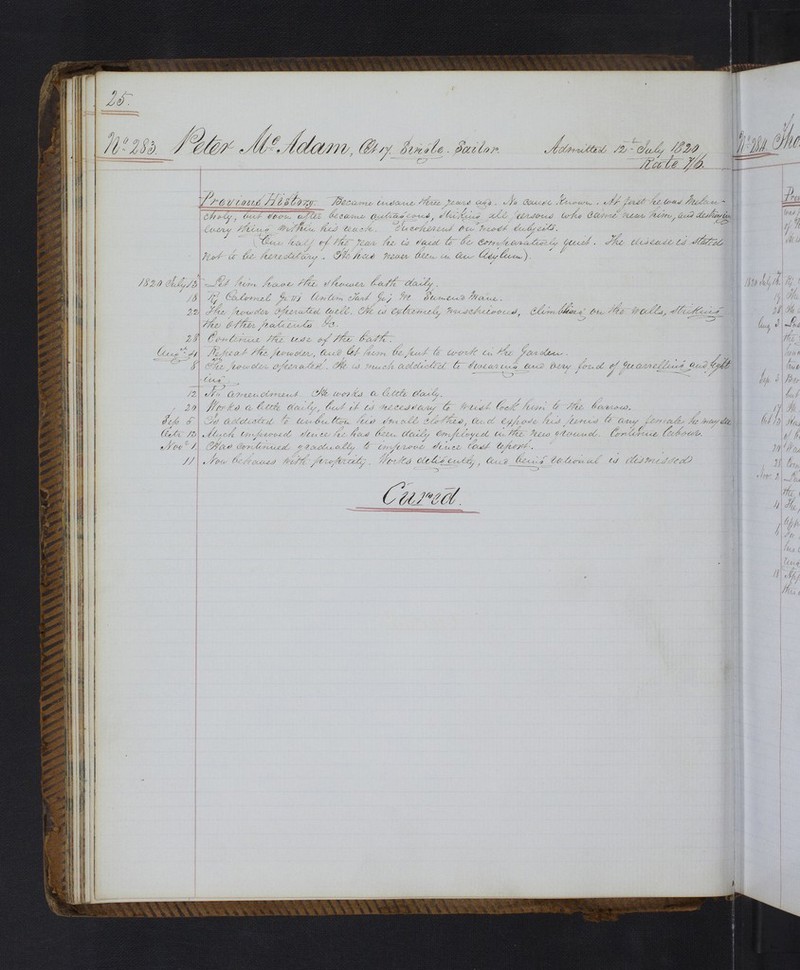 25.
No. 283. Peter McAdam, Æt 17. Single. Sailor. Admitted 12th July 1820
Rate 7/6
Previous History. Became insane three years ago. No cause known. At first he was melan-
choly, but soon after became outrageous, striking all persons who came near him, and destroying
every thing within his reach. Incoherent on most subjects.
One half of the year he is said to be comparatively quiet. The disease is stated
not to be hereditary. (He has never been in an Asylum).
1820 July 13 Let him have the shower bath daily.
18 Rx Calomel Gr vi Antim Tart Gr j M. Sumend Mane.
22 The powder operated well. He is extremely mischievous, climbing on the walls, striking
the other patients &c.
28 Continue the use of the bath.
Augst 4 Repeat the powder, and let him be put to work in the Garden.
8 The powder operated. He is much addicted to swearing and very fond of quarrelling and fight
ing.
12 No amendment. He works a little daily.
29 Works a little daily, but it is necessary to wrist lock him to the barrow.
Sep 5 Is addicted to unbutton his small clothes, and expose his penis to any female he may see
Octr 12 Much improved since he has been daily employed in the new ground. Continue labour.
Novr 1 Has continued gradually to improve since last report.
11 Now behaves with propriety. Works diligently, and being rational is dismissed
Cured.
No. 284. Tho